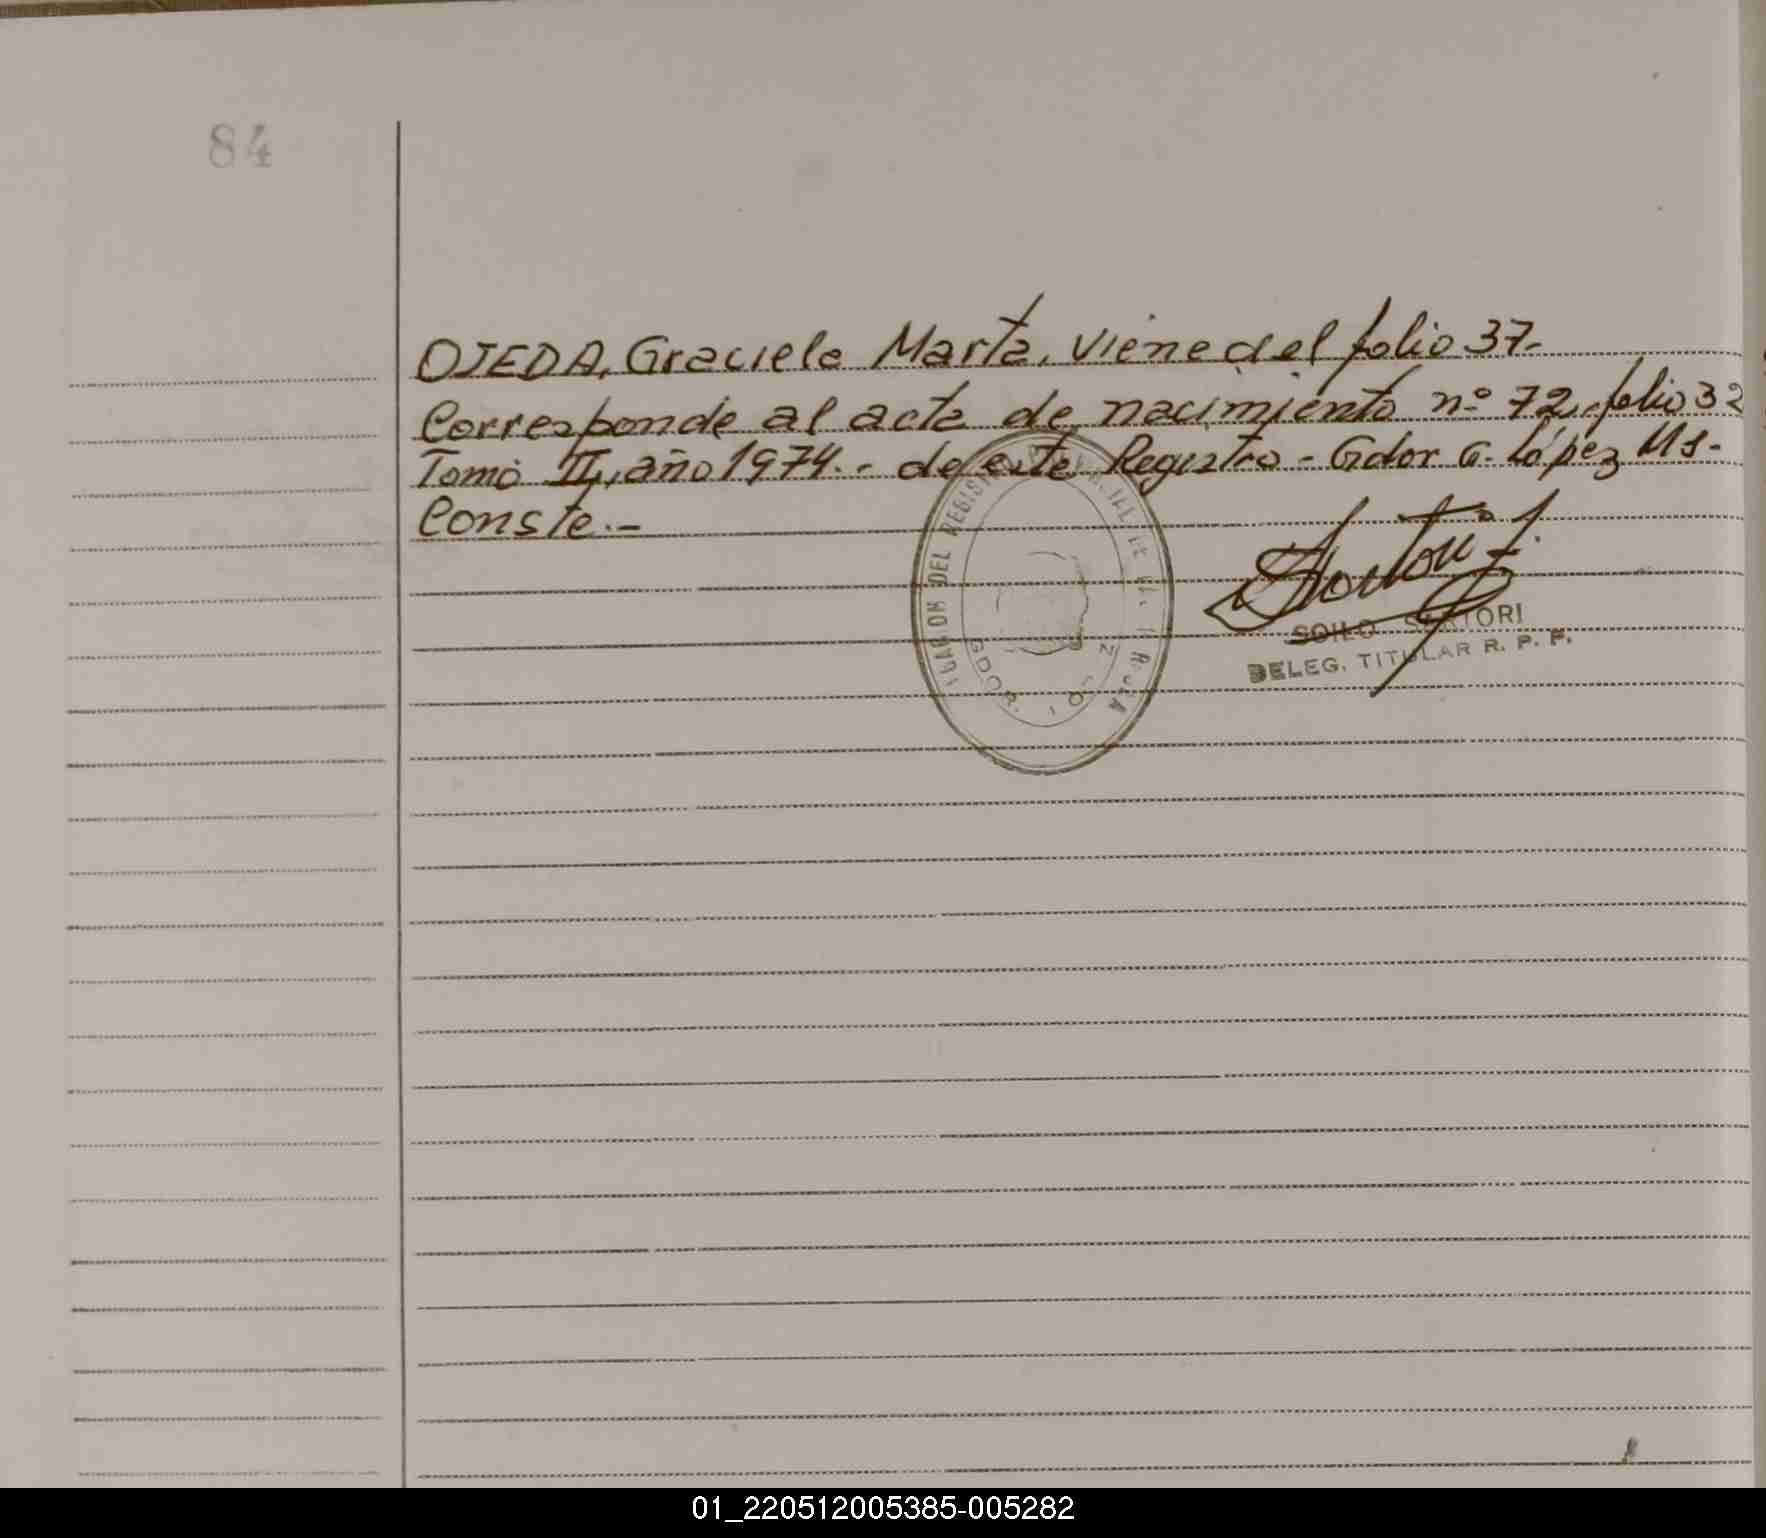 84
OJEDA, Graciela Marta, viene del folio 37.-
Corresponde al acta de nacimiento nº 72, folio 32
Tomo II, año 1974.- de este Registro - Gdor G. López Ms-
Conste.-
DEL REGIS
GDOR. LO Z
SOILO SARTORI
DELEG. TITULAR R. P. P.
01_220512005385-005282